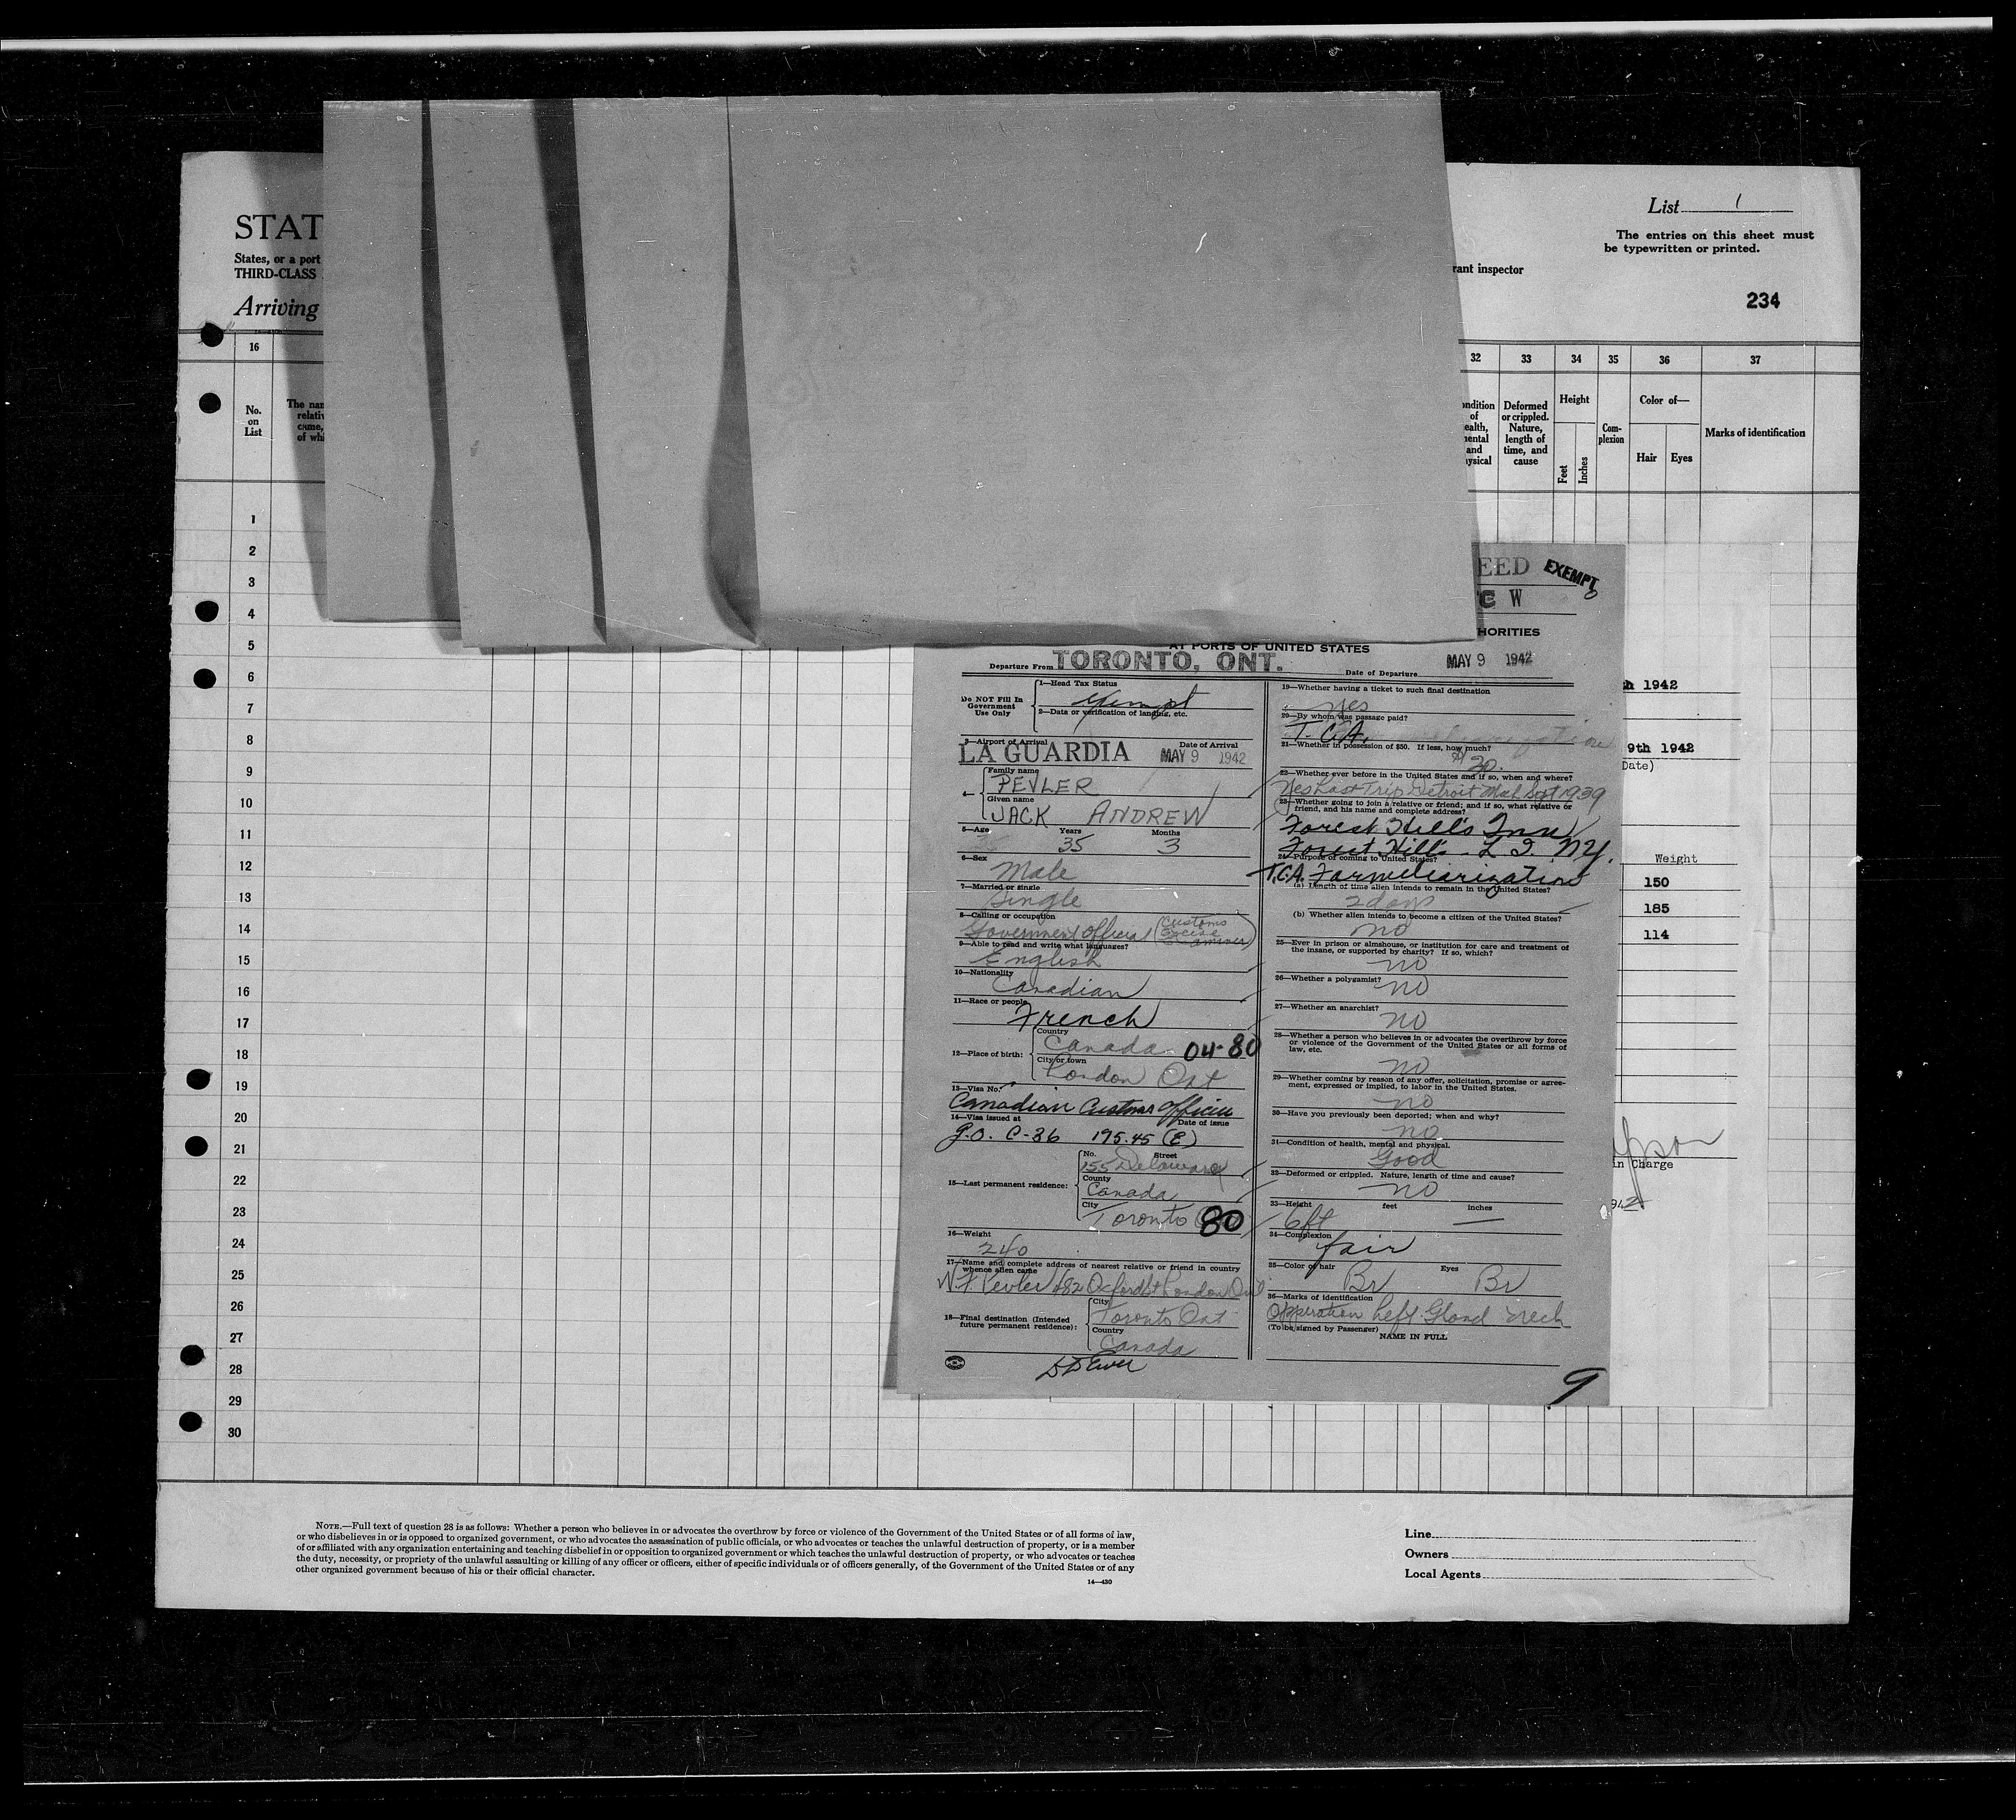 STAT
States, or a port
THIRD-CLASS
Arriving
List 1
The entries on this sheet must
be typewritten or printed.
rant inspector
234
16
32 33 34 35 36 37
No.
on
List
The nam
relativ
came,
of whi
ondition
of
ealth,
nental
and
ysical
Deformed
or crippled.
Nature,
length of
time, and
cause
Height
Feet
Inches
Com-
plexion
Color of—
Hair Eyes
Marks of identification
1
2
3
4
5
6
7
8
9
10
11
12
13
14
15
16
17
18
19
20
21
22
23
24
25
26
27
28
29
30
EED EXEMPT
W
HORITIES
AT PORTS OF UNITED STATES
Departure From TORONTO, ONT. Date of Departure MAY 9 1942
Do NOT Fill In
Government
Use Only
1—Head Tax Status
Exempt
2—Data or verification of landing, etc.
3—Airport of Arrival Date of Arrival
LA GUARDIA MAY 9 1942
4—
Family name
PEVLER
Given name
JACK ANDREW
5—Age Years Months
35 3
6—Sex
Male
7—Married or single
Single
8—Calling or occupation
Government Officer (Customs Excise Examiner)
9—Able to read and write what languages?
English
10—Nationality
Canadian
11—Race or people
French
12—Place of birth:
Country
Canada 04-80
City or town
London Ont
13—Visa No.
Canadian Customs Officer
14—Visa issued at Date of issue
G.O. C-36 195.45 (E)
15—Last permanent residence:
No. Street
155 Delaware
County
Canada
City
Toronto 80
16—Weight
240
17—Name and complete address of nearest relative or friend in country
whence alien came
W. F. Pevler 682 Oxford St London Ont
18—Final destination (Intended
future permanent residence):
City
Toronto Ont
Country
Canada
19—Whether having a ticket to such final destination
yes
20—By whom was passage paid?
T.C.A.
21—Whether in possession of $50. If less, how much?
$30.
22—Whether ever before in the United States and if so, when and where?
Yes Last Trip Detroit Mich Sept 1939
23—Whether going to join a relative or friend; and if so, what relative or
friend, and his name and complete address?
Forest Hill's Inn
Forest Hill's - L. I. N.Y.
24—Purpose of coming to United States?
T.C.A. Farmiliarization
(a) Length of time alien intends to remain in the United States?
2 days
(b) Whether alien intends to become a citizen of the United States?
no
25—Ever in prison or almshouse, or institution for care and treatment of
the insane, or supported by charity? If so, which?
no
26—Whether a polygamist?
no
27—Whether an anarchist?
no
28—Whether a person who believes in or advocates the overthrow by force
or violence of the Government of the United States or all forms of
law, etc.
no
29—Whether coming by reason of any offer, solicitation, promise or agree-
ment, expressed or implied, to labor in the United States.
no
30—Have you previously been deported; when and why?
no
31—Condition of health, mental and physical.
Good
32—Deformed or crippled. Nature, length of time and cause?
no
33—Height feet inches
6 ft —
34—Complexion
fair
35—Color of hair Eyes
Br Br
36—Marks of identification
Opperation Left Gland neck
(To be signed by Passenger)
NAME IN FULL
9
h 1942
9th 1942
Date)
Weight
150
185
114
in Charge
942
NOTE.—Full text of question 28 is as follows: Whether a person who believes in or advocates the overthrow by force or violence of the Government of the United States or of all forms of law,
or who disbelieves in or is opposed to organized government, or who advocates the assassination of public officials, or who advocates or teaches the unlawful destruction of property, or is a member
of or affiliated with any organization entertaining and teaching disbelief in or opposition to organized government or which teaches the unlawful destruction of property, or who advocates or teaches
the duty, necessity, or propriety of the unlawful assaulting or killing of any officer or officers, either of specific individuals or of officers generally, of the Government of the United States or of any
other organized government because of his or their official character.
14—430
Line
Owners
Local Agents